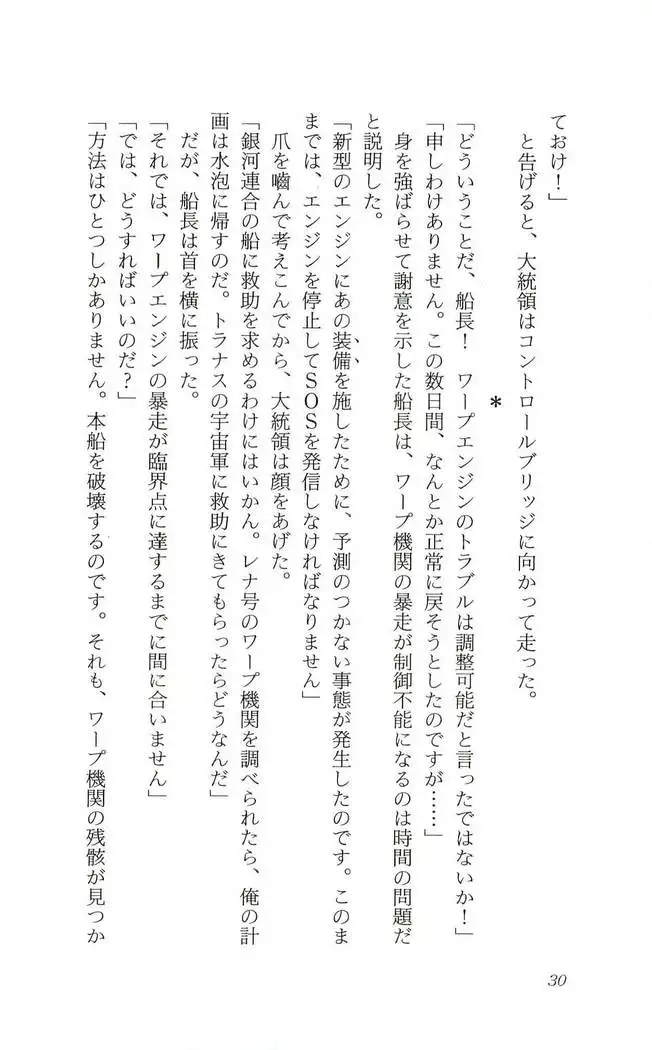 ておけ！」
と告げると、大統領はコントロールブリッジに向かって走った。
＊
「どういうことだ、船長！　ワープエンジンのトラブルは調整可能だと言ったではないか！」
「申しわけありません。この数日間、なんとか正常に戻そうとしたのですが……」
身を強ばらせて謝意を示した船長は、ワープ機関の暴走が制御不能になるのは時間の問題だ
と説明した。
「新型のエンジンにあの装備を施したために、予測のつかない事態が発生したのです。このま
までは、エンジンを停止してSOSを発信しなければなりません」
爪を嚙んで考えこんでから、大統領は顔をあげた。
「銀河連合の船に救助を求めるわけにはいかん。レナ号のワープ機関を調べられたら、俺の計
画は水泡に帰すのだ。トラナスの宇宙軍に救助にきてもらったらどうなんだ」
だが、船長は首を横に振った。
「それでは、ワープエンジンの暴走が臨界点に達するまでに間に合いません」
「では、どうすればいいのだ？」
「方法はひとつしかありません。本船を破壊するのです。それも、ワープ機関の残骸が見つか
30